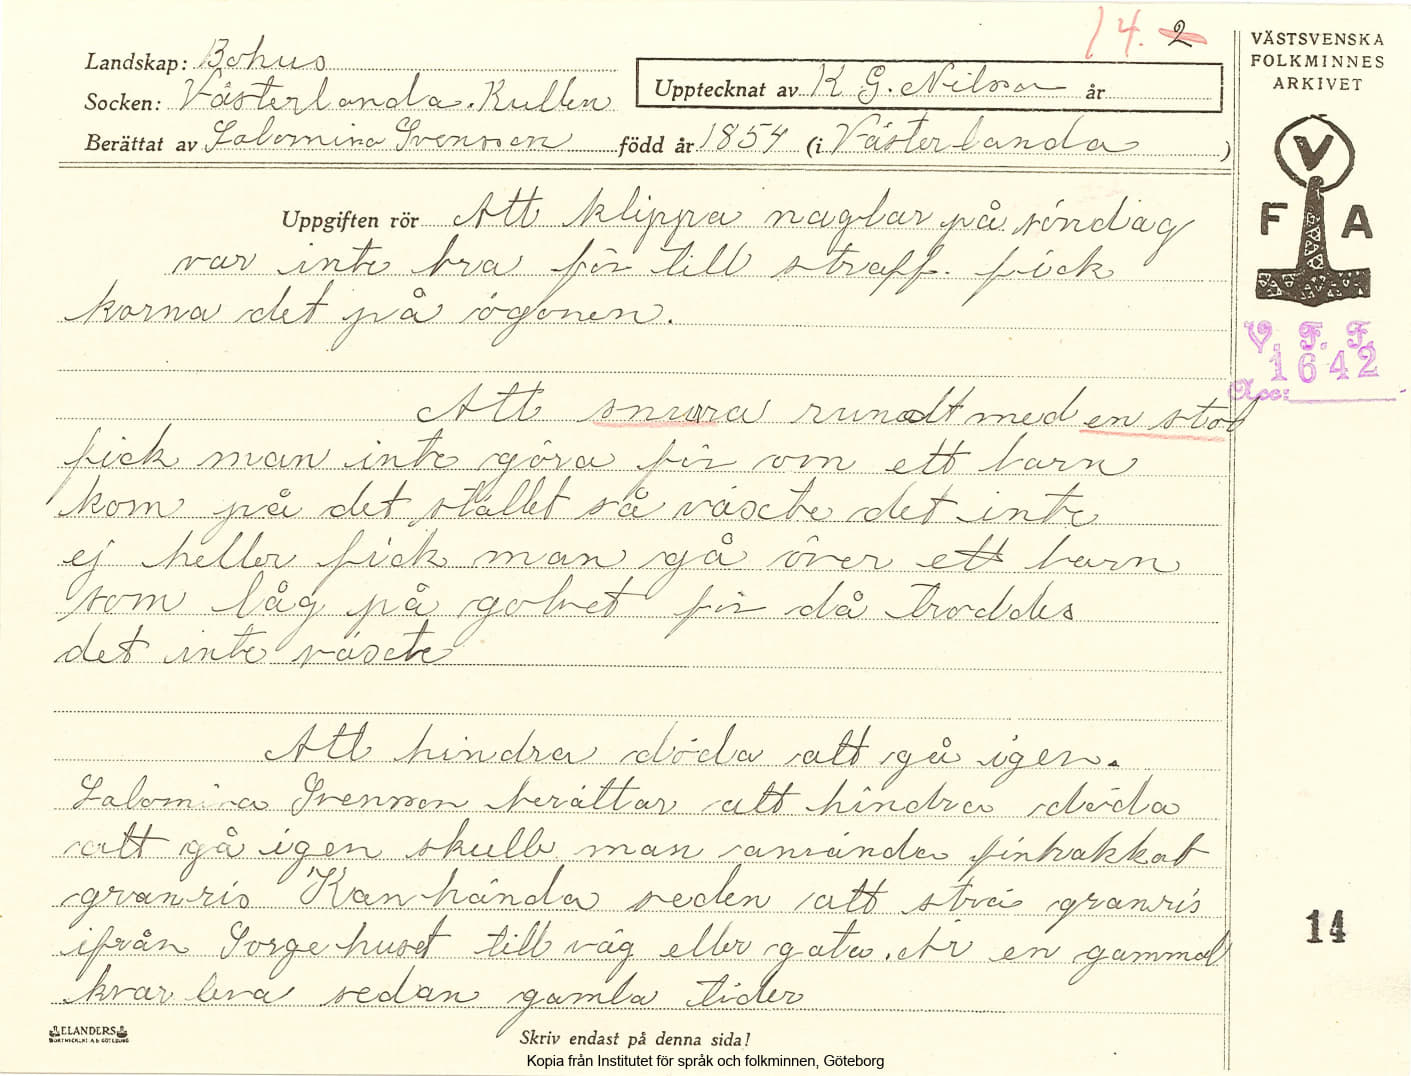 14. 2
Landskap: Bohus
Socken: Västerlanda. Kullen
Upptecknat av K G. Nilsson år
Berättat av Salomina Svensson född år 1854 (i Västerlanda )
VÄSTSVENSKA
FOLKMINNES
ARKIVET
V
F A
V. F. F.
1642
Acc:
Uppgiften rör Att klippa naglar på söndag
var inte bra för till straff. fick
korna det på ögonen.
Att snurra rundt med en stol
fick man inte göra för om ett barn
kom på det stället så växte det inte
ej heller fick man gå över ett barn
som låg på golvet för då troddes
det inte växte
Att hindra döda att gå igen.
Salomina Svensson berättar att hindra döda
att gå igen skulle man använda finhakkat
granris Kan hända seden att strö granris
ifrån Sorgehuset till väg eller gata. Är en gammal
kvarleva sedan gamla tider
14
ELANDERS
Skriv endast på denna sida!
Kopia från Institutet för språk och folkminnen, Göteborg